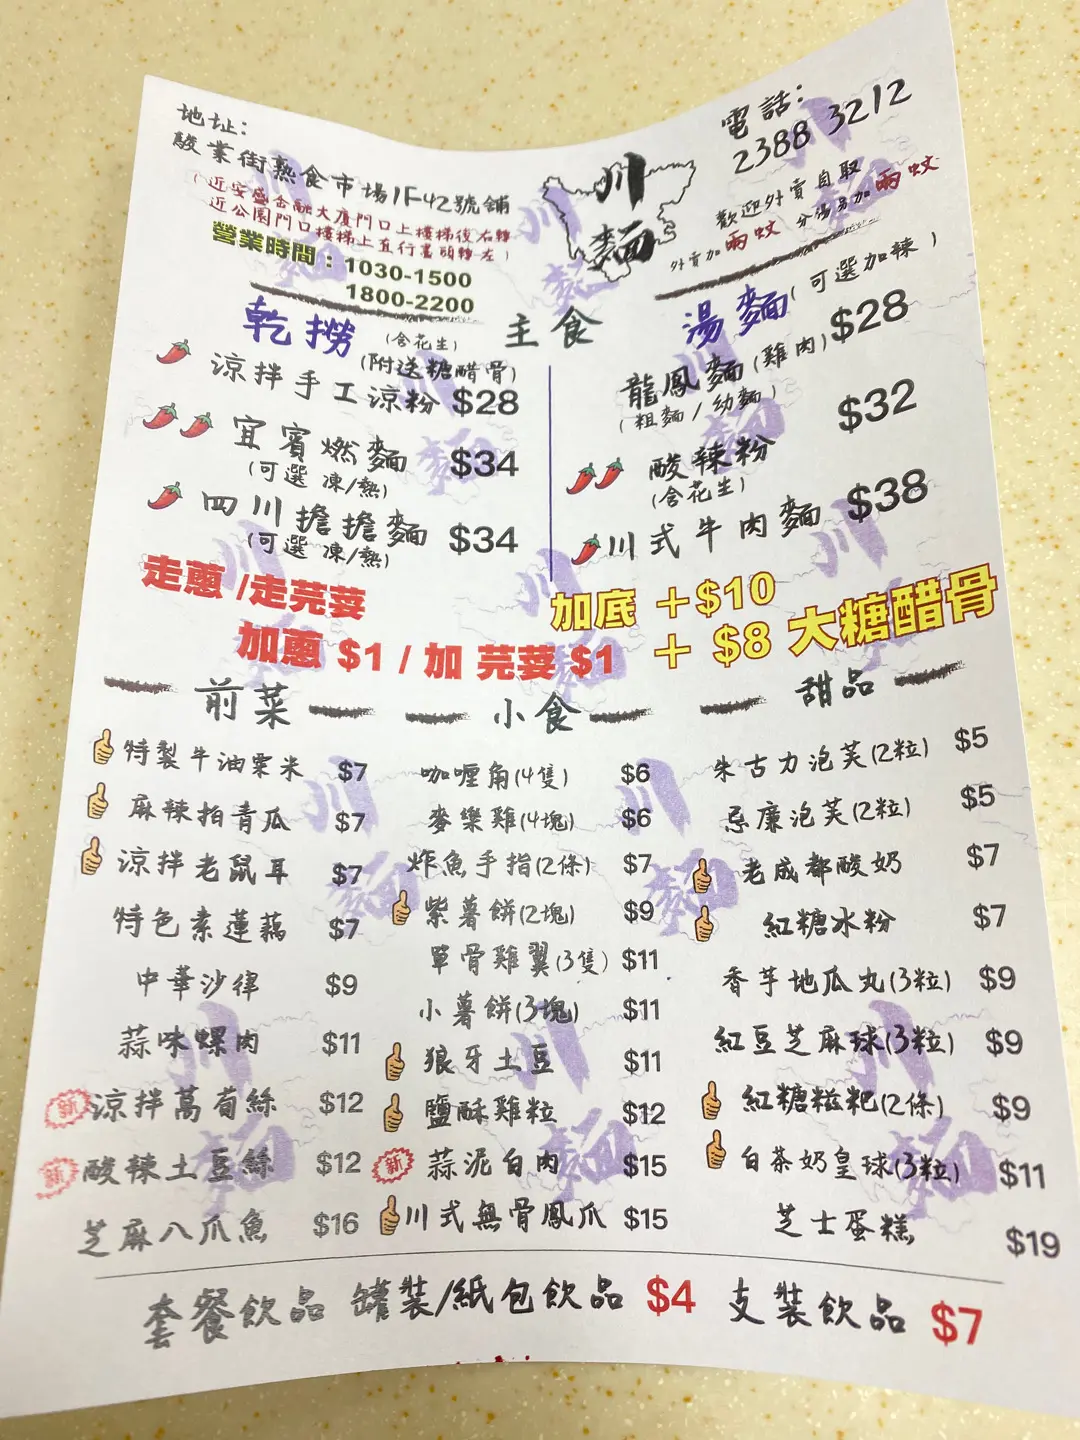 地址:
駿業街熟食市場1F42號舖
(近安盛金融大廈門口上樓梯後右轉
近公園門口樓梯上直行盡頭轉左)
營業時間：1030-1500
1800-2200
川
麵
電話:
2388 3212
歡迎外賣自取
外賣加兩蚊 分湯另加兩蚊
主食
乾撈(含花生)
(附送糖醋骨)
涼拌手工涼粉 $28
宜賓燃麵 $34
(可選 凍/熱)
四川擔擔麵 $34
(可選 凍/熱)
湯麵(可選加辣)
龍鳳麵(雞肉) $28
(粗麵/幼麵)
酸辣粉 $32
(含花生)
川式牛肉麵 $38
走蔥 /走芫荽
加蔥 $1 / 加 芫荽 $1
加底 +$10
+ $8 大糖醋骨
前菜
特製牛油粟米 $7
麻辣拍青瓜 $7
涼拌老鼠耳 $7
特色素蓮藕 $7
中華沙律 $9
蒜味螺肉 $11
新 涼拌萵荀絲 $12
新 酸辣土豆絲 $12
芝麻八爪魚 $16
小食
咖喱角(4隻) $6
麥樂雞(4塊) $6
炸魚手指(2條) $7
紫薯餅(2塊) $9
單骨雞翼(3隻) $11
小薯餅(3塊) $11
狼牙土豆 $11
鹽酥雞粒 $12
新 蒜泥白肉 $15
川式無骨鳳爪 $15
甜品
朱古力泡芙(2粒) $5
忌廉泡芙(2粒) $5
老成都酸奶 $7
紅糖冰粉 $7
香芋地瓜丸(3粒) $9
紅豆芝麻球(3粒) $9
紅糖糍粑(2條) $9
白茶奶皇球(3粒) $11
芝士蛋糕 $19
套餐飲品 罐裝/紙包飲品 $4 支裝飲品 $7